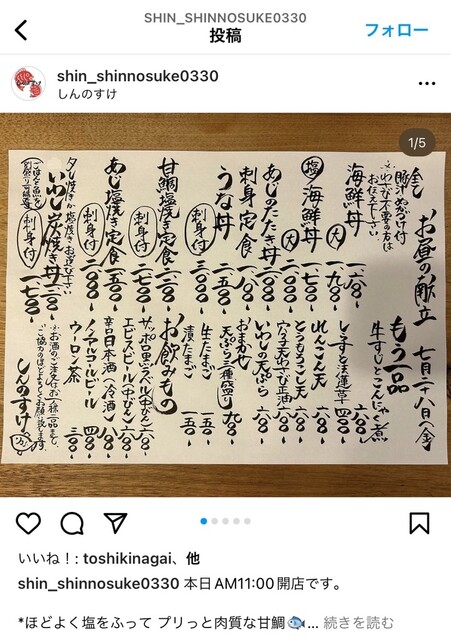 SHIN_SHINNOSUKE0330
投稿
フォロー
shin_shinnosuke0330
しんのすけ
1/5
お昼の献立 七月二十八日(金)
※わさび不要の方は
お伝え下さい
海鮮丼
大
塩 海鮮丼
大 二〇〇〇
あじのたたき丼
刺身定食 一八〇〇
うな丼 二五〇〇
刺身付 三〇〇〇
甘鯛塩焼き定食
刺身付
あじ塩焼き定食 一五〇〇
刺身付 二〇〇〇
タレ焼きか塩焼きお選び下さい
いわし炭焼き丼 一二〇〇
刺身付 一七〇〇
もう一品
牛すじとこんにゃく煮
四〇〇
れんこん天 六〇〇
とうもろこし天 六〇〇
六〇〇
いわしの天ぷら 六〇〇
おまかせ
天ぷら三種盛り 九〇〇
生たまご 一五〇
漬たまご 一五〇
お飲みもの
サッポロ黒ラベル(中びん) 六〇〇
エビスビール(中びん)
辛口日本酒(冷酒) 八〇〇
ノンアルコールビール 四〇〇
ウーロン茶 三〇〇
※お酒のご注文は お一人様二品まで。
ご協力のほどよろしくお願い致します。
しんのすけ
いいね！: toshikinagai、他
shin_shinnosuke0330 本日AM11:00開店です。
*ほどよく塩をふって プリっと肉質な甘鯛🐟... 続きを読む